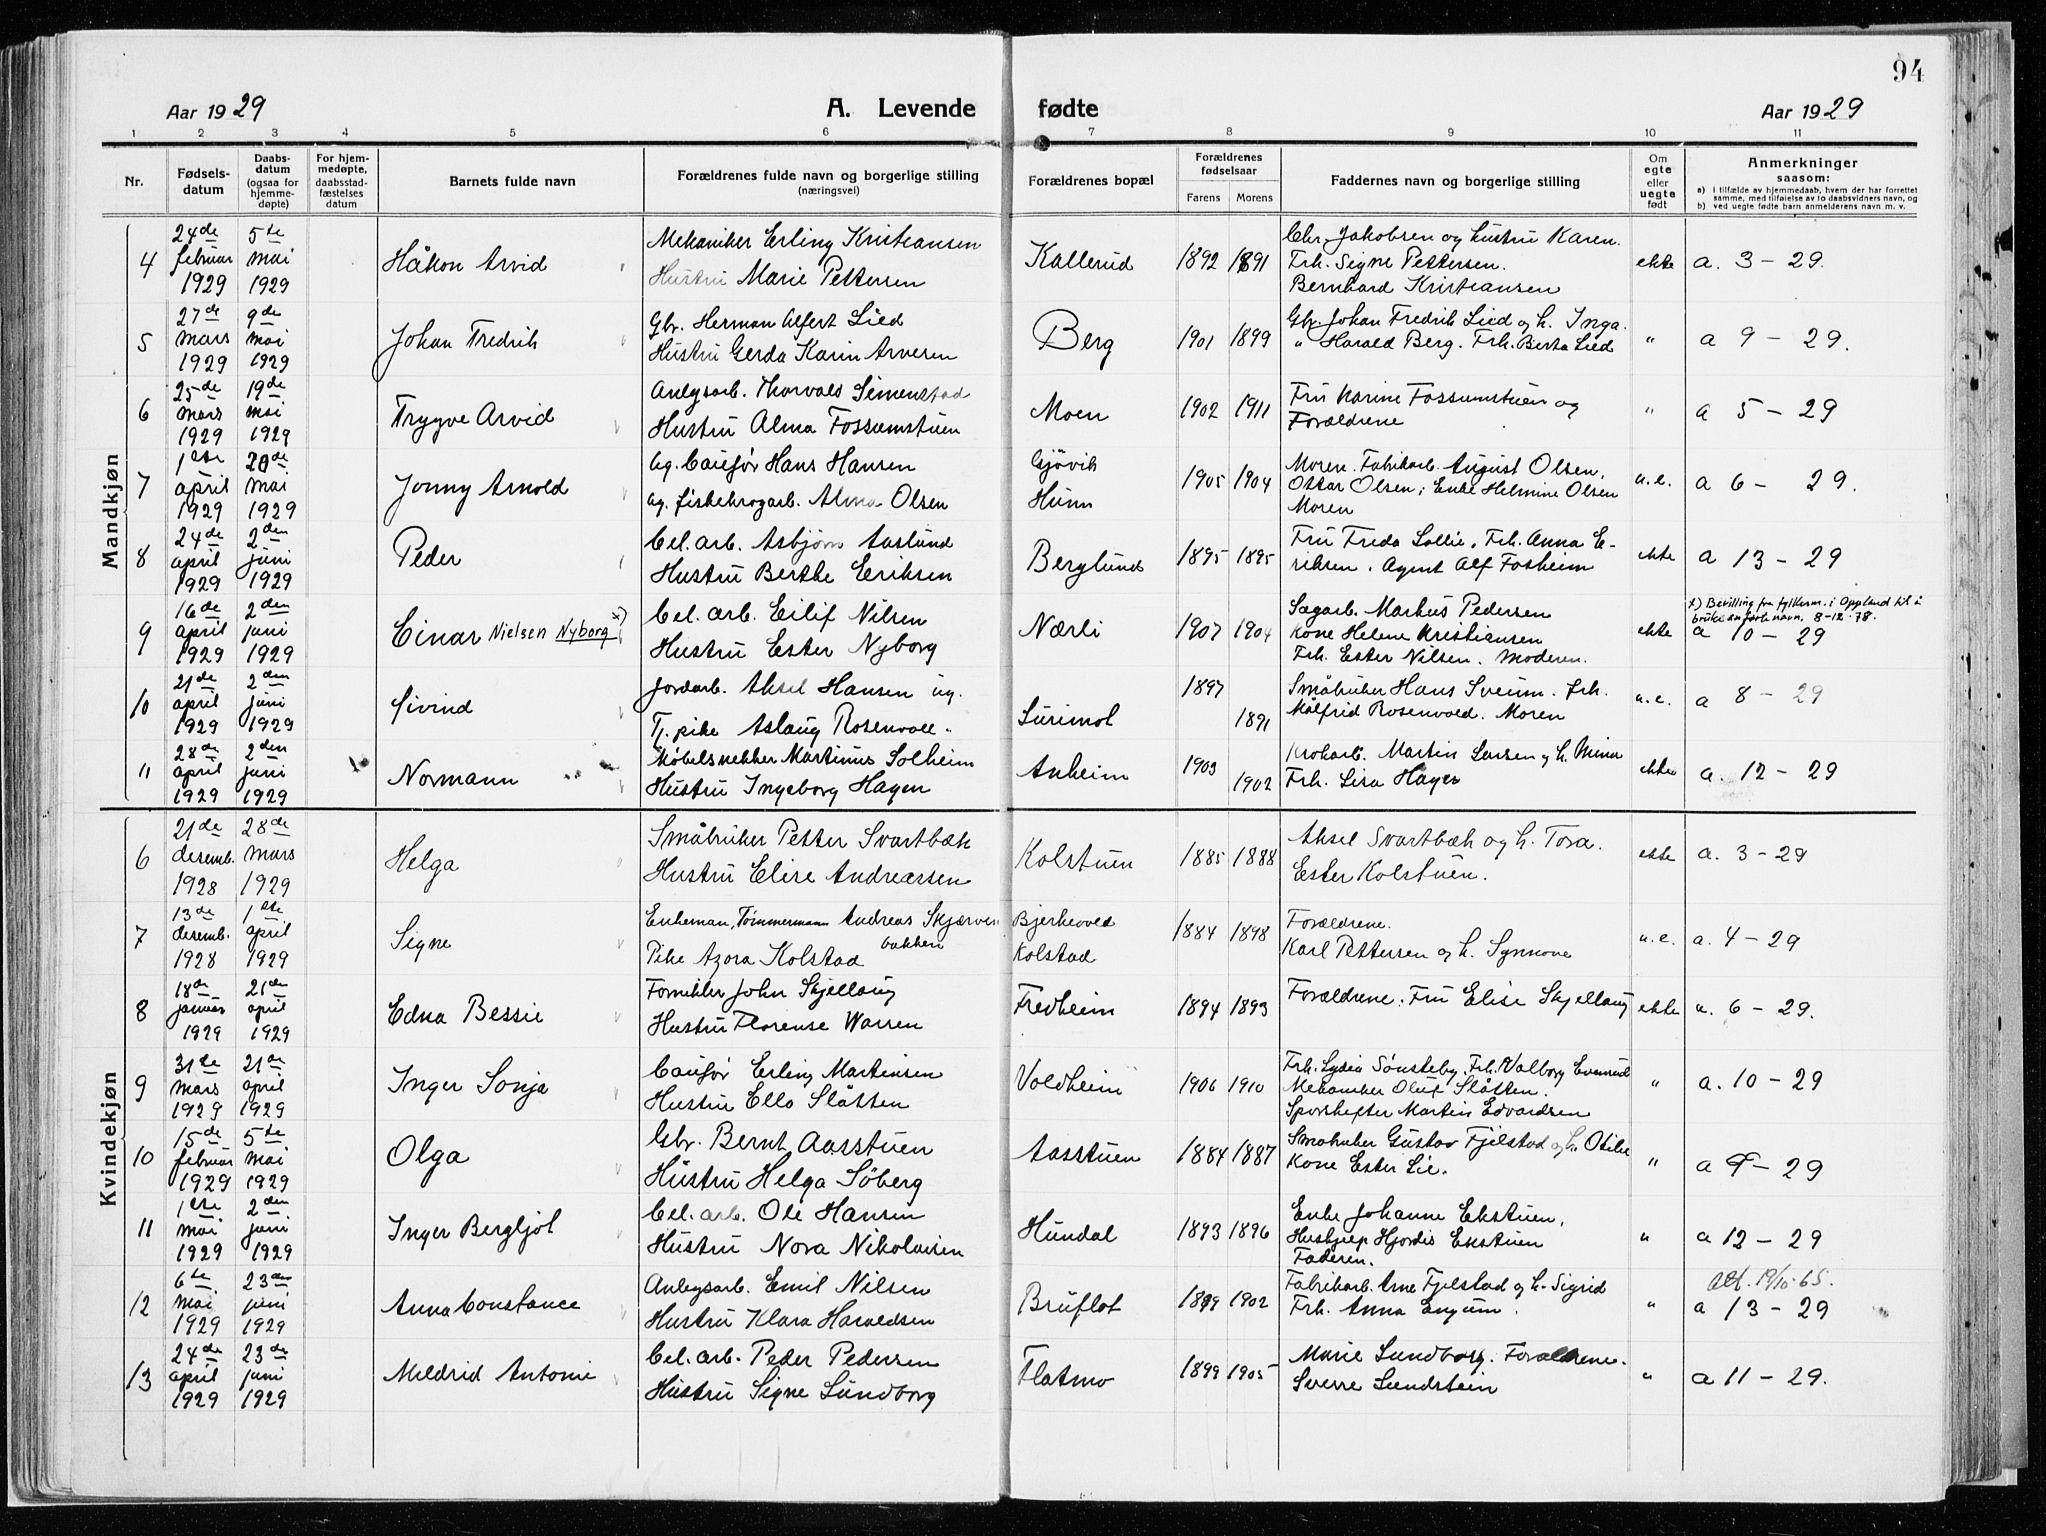 94
Aar 1929
A. Levende fødte
Aar 1929
1 2 3 4 5 6 7 8 9 10 11
Nr.
Fødsels-
datum
Daabs-
datum
(ogsaa for
hjemme-
døpte)
For hjem-
medøpte,
daabsstad-
fæstelses
datum
Barnets fulde navn
Forældrenes fulde navn og borgerlige stilling
(næringsvei)
Forældrenes bopæl
Forældrenes
fødselsaar
Farens Morens
Faddernes navn og borgerlige stilling
Om
egte
eller
uegte
født
Anmerkninger
saasom:
a) i tilfælde av hjemmedaab, hvem der har forrettet
samme, med tilføielse av to daabsvidners navn, og
b) ved uegte fødte barn anmelderens navn m. v.
Mandkjøn
4
24de
februar
1929
5te
mai
1929
Håkon Arvid
Mekaniker Erling Kristiansen
Hustru Marie Pettersen
Kallerud
1892 1891
Chr. Jakobsen og hustru Karen.
Frk. Signe Pettersen.
Bernhard Kristiansen
ekte
a. 3 - 29.
5
27de
mars
1929
9de
mai
1929
Johan Fredrik
Gbr. Herman Alfert Lied
Hustru Gerda Karin Arnesen
Berg
1901 1899
Gbr. Johan Fredrik Lied og h. Inga.
" Harald Berg. Frk. Berta Lied
"
a 9 - 29.
6
25de
mars
1929
19de
mai
1929
Trygve Arvid
Anlegsarb. Thorvald Simenstad
Hustru Alma Fossumstuen
Moen
1902 1911
Fru Karine Fossumstuen og
Forældrene
"
a 5 - 29
7
1ste
april
1929
20de
mai
1929
Jonny Arnold
ug. Chaufør Hans Hansen
ug. fiskekrogarb. Alma Olsen
Gjövik
Hunn
1905 1904
Moren. Fabrikarb. August Olsen,
Ottar Olsen; Enke Helmine Olsen
Moren
u.e.
a 6 - 29.
8
24de
april
1929
2den
juni
1929
Peder
Cel. arb. Asbjørn Aaslund
Hustru Berthe Eriksen
Berglund
1895 1895
Fru Freda Lollie, Frk. Anna E-
riksen. Agent Alf Fosheim
ekte
a 13 - 29
9
16de
april
1929
2den
juni
1929
Einar Nielsen Nyborg x)
Cel. arb. Eilif Nilsen
Hustru Ester Nyborg
Nærli
1907 1904
Sagarb. Markus Pedersen
Kone Helene Kristiansen
Frk. Ester Nilsen. Moderen.
ekte
x) Bevilling fra fylkesm. i Oppland til å
bruke anførte navn. 8-12-78.
a 10 - 29
10
21de
april
1929
2den
juni
1929
Øivind
Jordarb. Aksel Hansen ug.
Tj. pike Aslaug Rosenvold.
Lurimol
1897
1891
Småbruker Hans Sveum. frk.
Målfrid Rosenvold. Moren
u.e.
a 8 - 29
11
28de
april
1929
2den
juni
1929
Normann
Møbelsnekker Martinus Solheim
Hustru Ingeborg Hagen
Anheim
1903
1902
Krokarb. Martin Larsen og h. Mina
Frk. Lisa Hagen
ekte
a. 12 - 29
Kvindekjøn
6
21de
desemb.
1928
28de
mars
1929
Helga
Småbruker Petter Svartbæk
Hustru Elise Andreassen
Kolstuen
1885 1888
Aksel Svartbæk og h. Tora.
Ester Kolstuen.
ekte
a. 3 - 29
7
13de
desemb.
1928
1ste
april
1929
Signe
Enkeman, Tømmermann Andreas Skjærven
bakken
Pike Azora Kolstad
Bjerkevold
Kolstad
1884 1898
Forældrene.
Karl Pettersen og h. Synnøve
u.e.
a. 4 - 29
8
18de
januar
1929
21de
april
1929
Edna Bessie
Fornikler John Skjellaug
Hustru Florense Warren
Fredheim
1894 1893
Forældrene. Fru Elise Skjellaug
ekte
a. 6 - 29.
9
31te
mars
1929
21de
april
1929
Inger Sonja
Chaufør Erling Martinsen
Hustru Ella Slåtten
Voldheim
1906 1910
Frk. Lydia Sønsteby. Frk. Valborg Evenrud
Mekaniker Oluf Slåtten.
Sporskifter Martin Edvardsen
"
a. 10 - 29
10
15de
februar
1929
5te
mai
1929
Olga
Gbr. Bernt Aasstuen
Hustru Helga Söberg
Aasstuen
1884 1887
Småbruker Gustav Fjelstad og h. Otilie
Kone Ester Lie.
"
a 9 - 29
11
1ste
mai
1929
2den
juni
1929
Inger Bergljot
Cel. arb. Ole Hansen
Hustru Nora Nikolaisen
Hundal
1893 1896
Enke Johanne Ekstuen,
Huskjep Hjørdis Ekstuen
Faderen.
"
a 12 - 29
12
6te
mai
1929
23de
juni
1929
Anna Constance
Anlegsarb. Emil Nilsen
Hustru Klara Haraldsen
Bruflot
1899 1902
Fabrikarb. Arne Fjelstad og h. Sigrid
Frk. Anna Engum.
"
att. 19/10-65.
a 13 - 29
13
24de
april
1929
23de
juni
1929
Meldrid Antonie
Cel. arb. Peder Pedersen
Hustru Signe Lundborg
Flatmo
1899 1905
Marie Lundborg. Forældrene.
Sverre Lundstein
"
a 11 - 29.